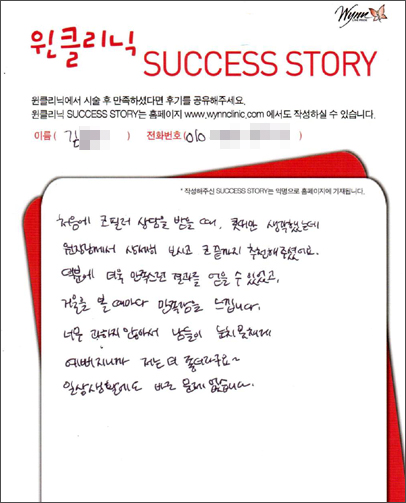 Wynn
윈클리닉
SUCCESS STORY
윈클리닉에서 시술 후 만족하셨다면 후기를 공유해주세요.
윈클리닉 SUCCESS STORY는 홈페이지 www.wynnclinic.com 에서도 작성하실 수 있습니다.
이름 ( 김 ) 전화번호 ( 010 )
* 작성해주신 SUCCESS STORY는 익명으로 홈페이지에 기재됩니다.
처음에 코필러 상담을 받을 때, 콧대만 생각했는데
원장님께서 상세히 보시고 코끝까지 추천해주셨어요.
덕분에 더욱 만족스런 결과를 얻을 수 있었고,
거울을 볼 때마다 만족감을 느낍니다.
너무 과하지 않아서 남들이 눈치 못채게
예뻐지니까 저는 더 좋더라구요~
일상생활에도 바로 문제 없습니다.